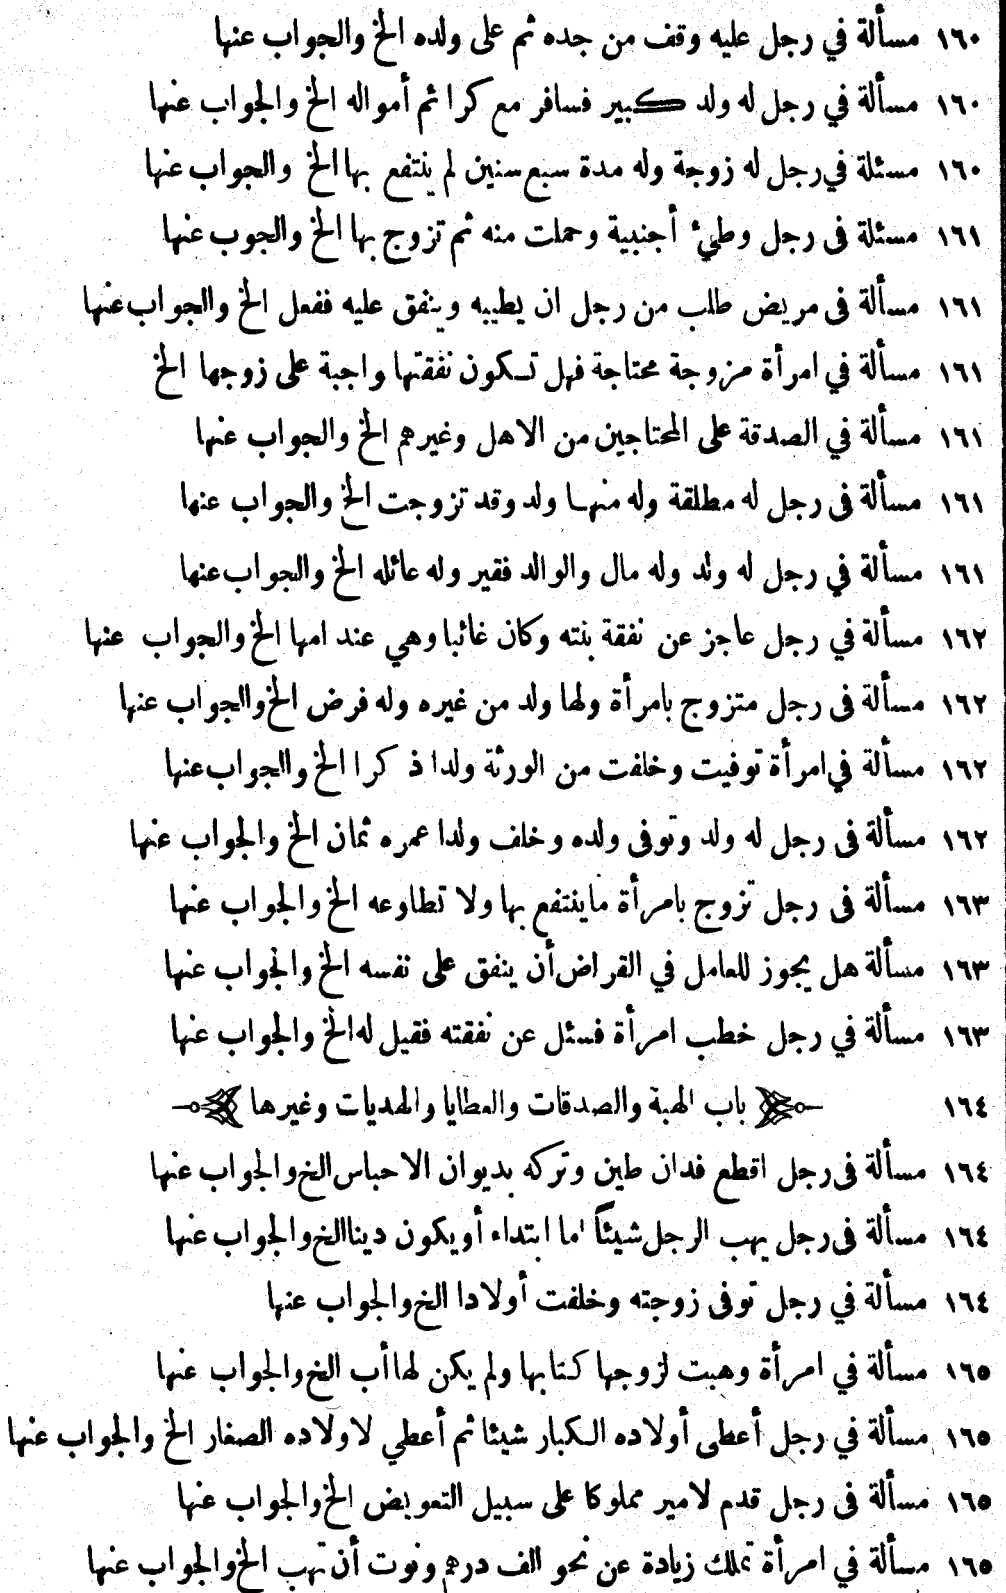 ١٦٠ مسألة في رجل عليه وقف من جده ثم على ولده الخ والجواب عنها
١٦٠ مسألة في رجل له ولد كبير فسافر مع كرا ثم أمواله الخ والجواب عنها
١٦٠ مسئلة في رجل له زوجة وله مدة سبع سنين لم ينتفع بها الخ والجواب عنها
١٦١ مسئلة فى رجل وطيء أجنبية وحملت منه ثم تزوج بها الخ والجوب عنها
١٦١ مسألة فى مريض طلب من رجل ان يطيبه وينفق عليه ففعل الخ والجواب عنها
١٦١ مسألة في امرأة مزوجة محتاجة فهل تكون نفقتها واجبة على زوجها الخ
١٦١ مسألة في الصدقة على المحتاجين من الاهل وغيرهم الخ والجواب عنها
١٦١ مسألة فى رجل له مطلقة وله منها ولد وقد تزوجت الخ والجواب عنها
١٦١ مسألة في رجل له ولد وله مال والوالد فقير وله عائله الخ والجواب عنها
١٦٢ مسألة في رجل عاجز عن نفقة بنته وكان غائبا وهي عند امها الخ والجواب عنها
١٦٢ مسألة فى رجل متزوج بامرأة ولها ولد من غيره وله فرض الخ والجواب عنها
١٦٢ مسألة في امرأة توفيت وخلفت من الورثة ولدا ذ كرا الخ والجواب عنها
١٦٢ مسألة فى رجل له ولد وتوفى ولده وخلف ولدا عمره ثمان الخ والجواب عنها
١٦٣ مسألة فى رجل تزوج بامرأة ماينتفع بها ولا تطاوعه الخ والجواب عنها
١٦٣ مسألة هل يجوز للعامل في القراض أن ينفق على نفسه الخ والجواب عنها
١٦٣ مسألة في رجل خطب امرأة فسئل عن نفقته فقيل له الخ والجواب عنها
١٦٤ باب الهبة والصدقات والعطايا والهديات وغيرها
١٦٤ مسألة فى رجل اقطع فدان طين وتركه بديوان الاحباس الخ والجواب عنها
١٦٤ مسألة فى رجل يهب الرجل شيئاً اما ابتداء أو يكون دينا الخ والجواب عنها
١٦٤ مسألة في رجل توفى زوجته وخلفت أولادا الخ والجواب عنها
١٦٥ مسألة في امرأة وهبت لزوجها كتابها ولم يكن لها أب الخ والجواب عنها
١٦٥ مسألة في رجل أعطى أولاده الكبار شيئا ثم أعطي لاولاده الصغار الخ والجواب عنها
١٦٥ مسألة فى رجل قدم لامير مملوكا على سبيل التعويض الخ والجواب عنها
١٦٥ مسألة في امرأة تملك زيادة عن نحو الف درهم ونوت أن تهب الخ والجواب عنها